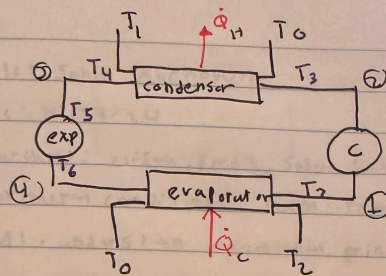 T1 Q̇H T0
③ T4 condensor T3 ②
T5
exp C
T6
④ evaporator T7 ①
T0 Q̇c T2